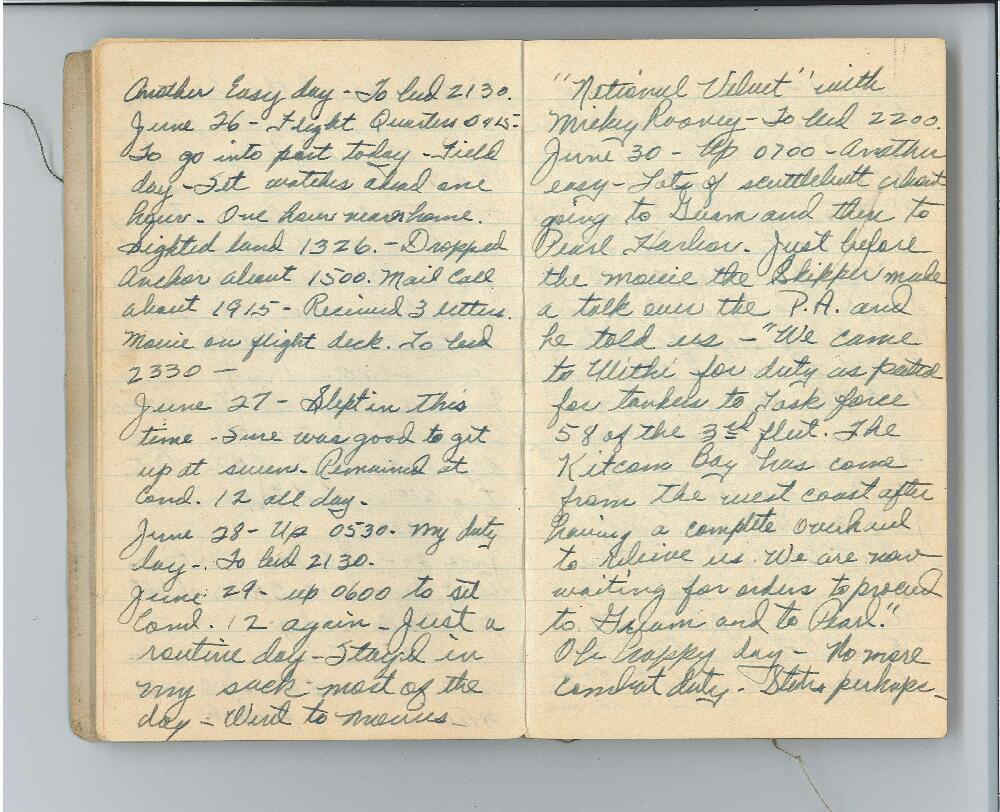 Another Easy day - To bed 2130.
June 26 - Flight Quarters 0415-
To go into port today - Field
day - Set watches ahead one
hour - One hour nearer home.
Sighted land 1326. - Dropped
Anchor about 1500. Mail Call
about 1915 - Received 3 letters.
Movie on flight deck. To bed
2330 -
June 27 - Slept in this
time - Sure was good to get
up at seven - Remained at
Cond. 12 all day.
June 28 - Up 0530. My duty
day -. To bed 2130.
June 29 - up 0600 to set
Cond. 12 again - Just a
routine day - Stayd in
my sack most of the
day - Went to movies -
"National Velvet" with
Mickey Rooney - To bed 2200.
June 30 - Up 0700 - Another
easy - Lots of scuttlebutt about
going to Guam and then to
Pearl Harbor. Just before
the movie the Skipper made
a talk over the P.A. and
he told us - "We came
to Ulithi for duty as
for tankers to Task force
58 of the 3rd fleet. The
Kitcom Bay has come
from the west coast after
having a complete overhaul
to relieve us. We are now
waiting for orders to proceed
to Guam and to Pearl."
Oh happy day - No more
combat duty - States perhaps -